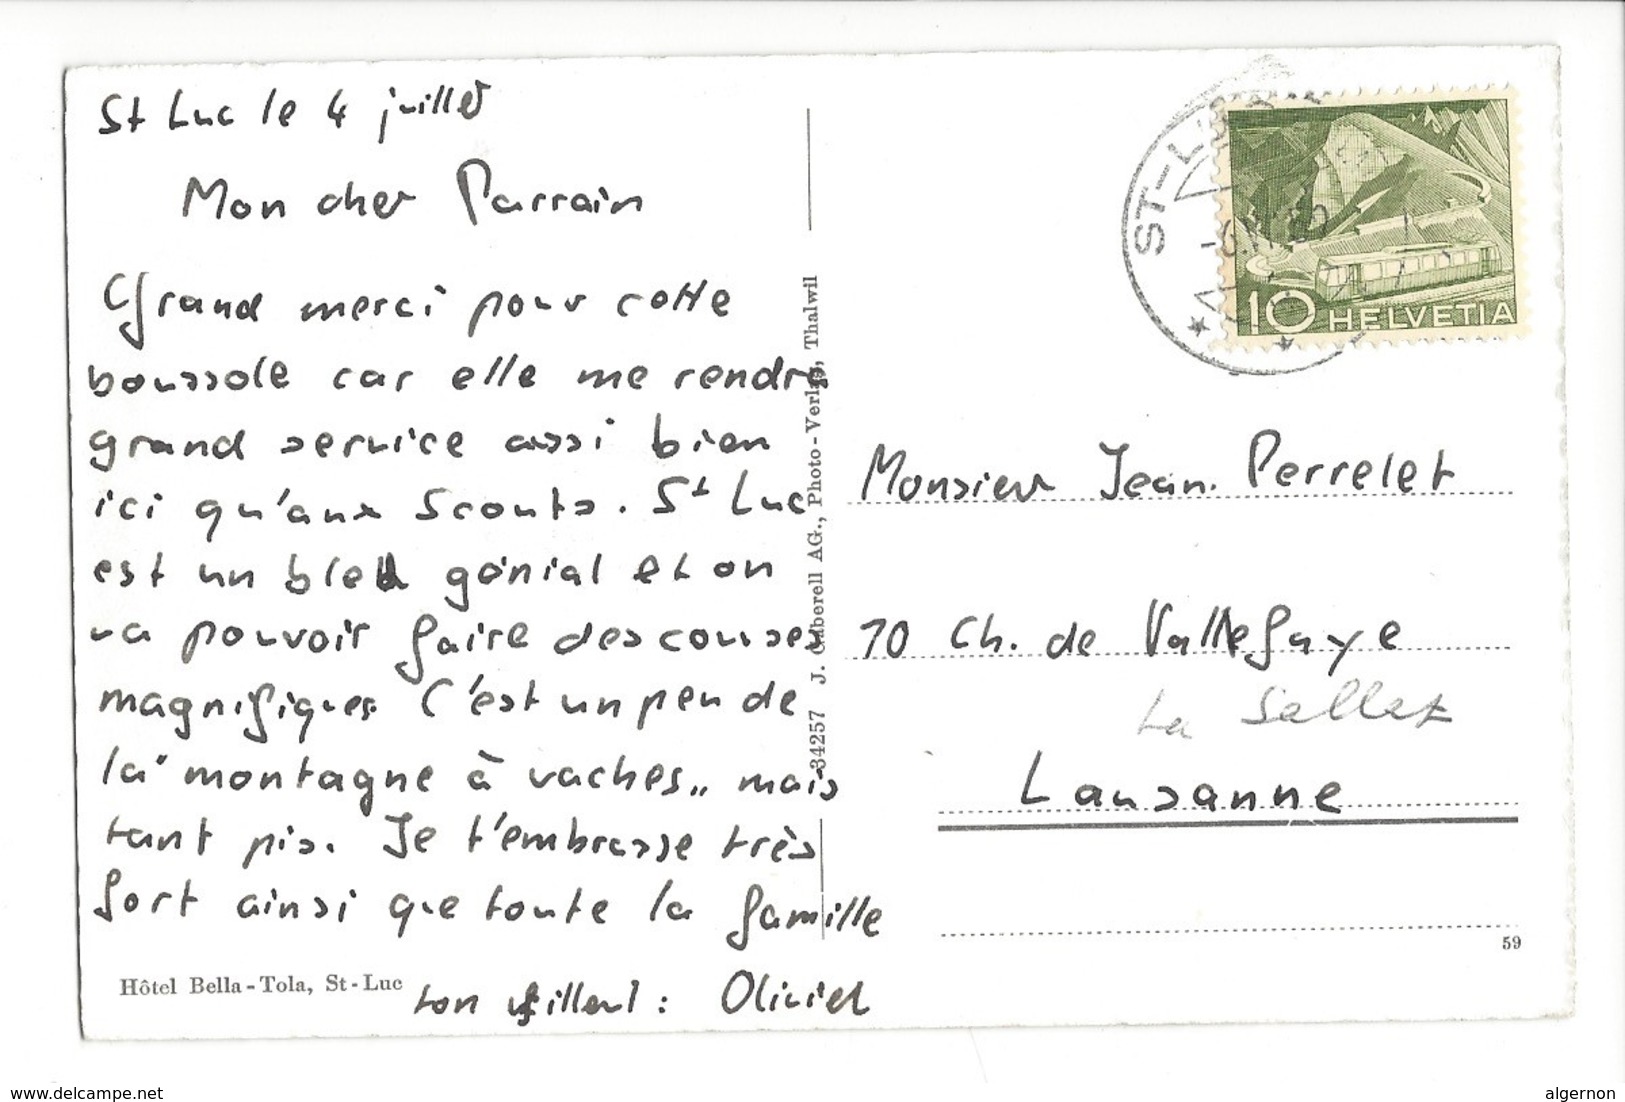 St Luc le 4 juillet
Mon cher Parrain
Grand merci pour cette
boussole car elle me rendra
grand service aussi bien
ici qu'aux Scouts. St Luc
est un bled génial et on
va pouvoir faire des courses
magnifiques. C'est un peu de
la "montagne à vaches,, mais
tant pis. Je t'embrasse très
fort ainsi que toute la famille
ton filleul : Olivier
Hôtel Bella-Tola, St-Luc
34257 J. Gaberell AG., Photo-Verlag, Thalwil
ST-LUC
10 HELVETIA
Monsieur Jean Perrelet
10 Ch. de Vallefaye
La Sallaz
Lausanne
59
www.delcampe.net
algernon